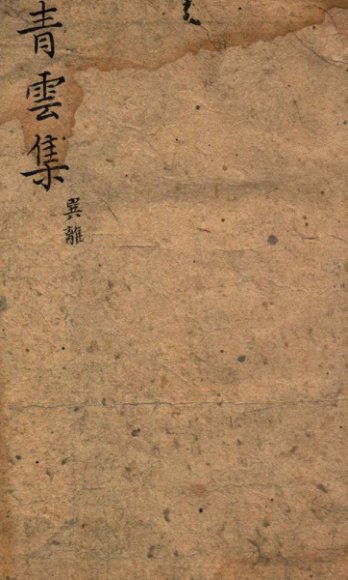 青雲集
巽離